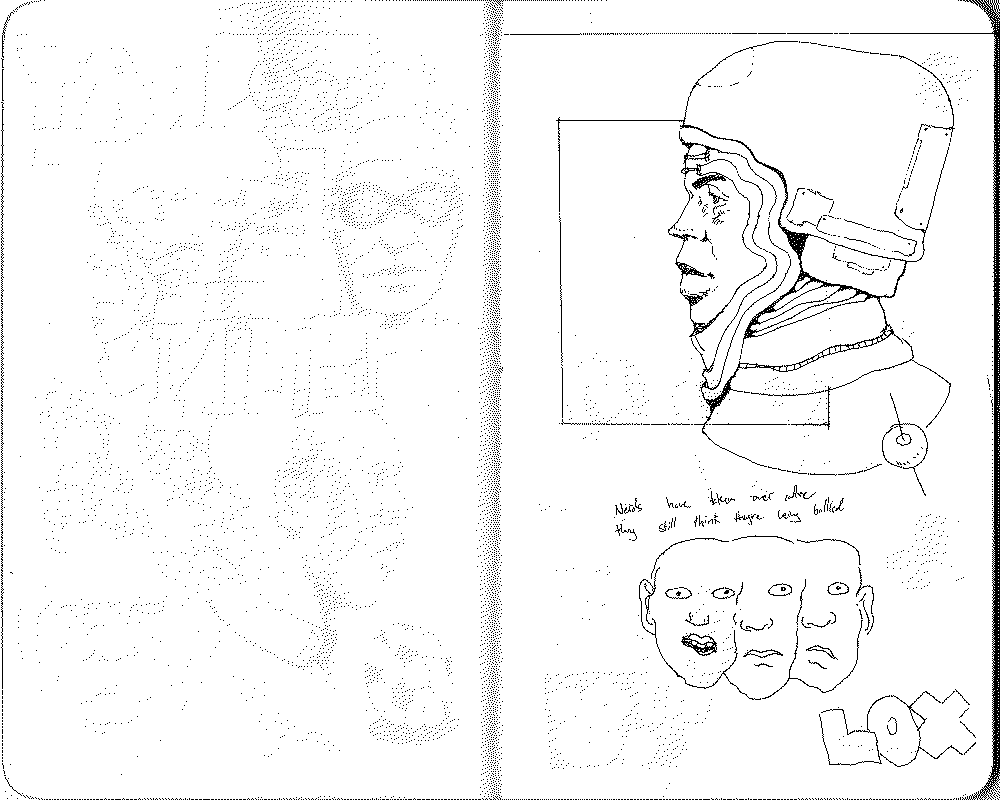 Nerds have taken over culture
they still think they're being bullied
LOX